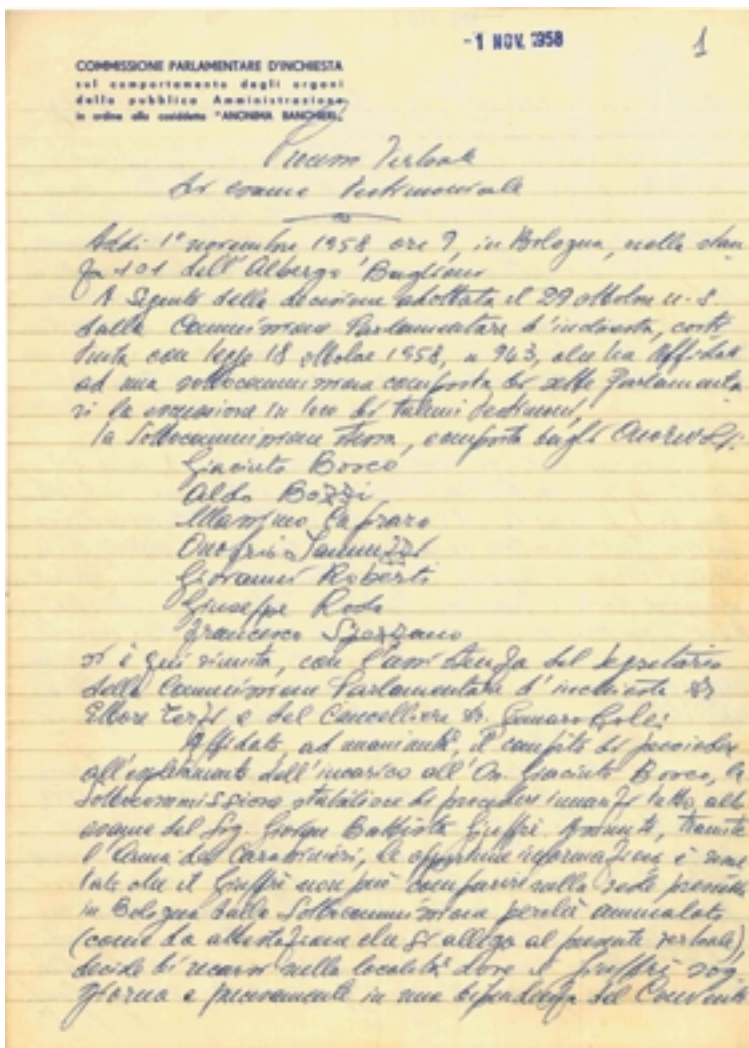 - 1 NOV. 1958
1
COMMISSIONE PARLAMENTARE D'INCHIESTA
sul comportamento degli organi
della pubblica Amministrazione
in ordine alla cosiddetta "ANONIMA BANCHIERI"
Verbale
di esame testimoniale
Addì 1° novembre 1958 ore 9, in Bologna, nella stan
za 101 dell'Albergo Baglioni
A seguito della decisione adottata il 29 ottobre u.s.
dalla Commissione Parlamentare d'inchiesta, costi
tuita con legge 18 ottobre 1958, n 943, che ha affidato
ad una sottocommissione composta di sette Parlamenta
ri la escussione in loco di testimoni,
la Sottocommissione stessa, composta dagli Onorevoli:
Giacinto Bosco
Aldo Bozzi
Massimo Caprara
Onofrio Jannuzzi
Giovanni Roberti
Giuseppe Roda
Francesco
si è qui riunita, con l'assistenza del Segretario
della Commissione Parlamentare d'inchiesta dr
Ettore Terzi e del Cancelliere dr. Gennaro
Affidato, ad unanimità, il compito di
all'espletamento dell'incarico all'On. Giacinto Bosco, la
Sottocommissione stabilisce di procedere innanzi tutto, allo
esame del Sig. Giovan Battista Giuffrè. Assunte, tramite
l'Arma dei Carabinieri, le opportune informazioni è risul
tato che il Giuffrè non può comparire nella sede
in Bologna dalla Sottocommissione perché ammalato
(come da attestazione che si allega al presente verbale),
decide di recarsi nella località dove il Giuffrè sog
giorna e precisamente in una dipendenza del Convento